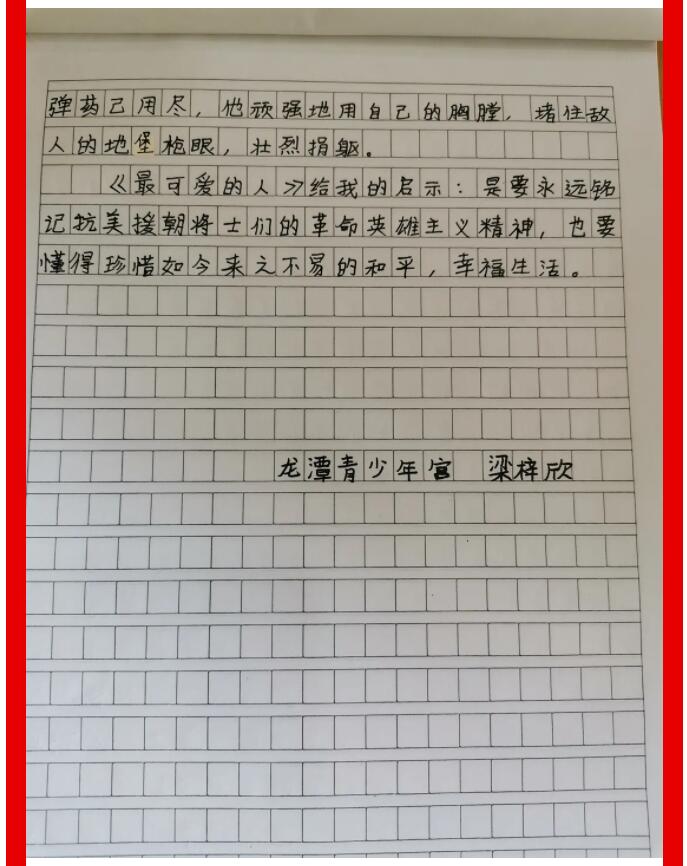 弹药已用尽，他顽强地用自己的胸膛，堵住敌
人的地堡枪眼，壮烈捐躯。
《最可爱的人》给我的启示：是要永远铭
记抗美援朝将士们的革命英雄主义精神，也要
懂得珍惜如今来之不易的和平，幸福生活。
龙潭青少年宫 梁梓欣